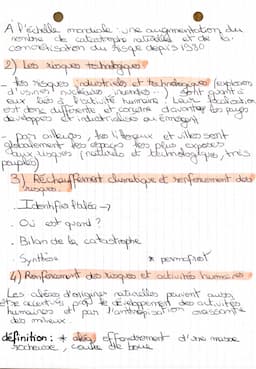 A l'échelle mondiale : une augmentation du
nombre de catastrophes naturelles et de la
concrétisation du risque depuis 1980
2) Les risques technologiques
- les risques industriels et technologiques (explosion
d'usines nucléaires, incendies...) sont quant à
eux liés à l'activité humaine. Leur localisation
est donc différente et concerne davantage les pays
développés et industrialisés ou émergents
- par ailleurs, les littoraux et villes sont
globalement les espaces les plus exposés
aux risques (naturels et technologiques, très
peuplés)
3) Réchauffement climatique et renforcement des
risques.
. Identifier l'aléa →
. Où est quand ?
. Bilan de la catastrophe
. Synthèse * permafrost
4) Renforcement des risques et activités humaines
Les aléas d'origines naturelles peuvent aussi
être accentués par le développement des activités
humaines et par l'anthropisation croissante
des milieux.
définition : * aléa, effondrement d'une masse
rocheuse, coulée de boue